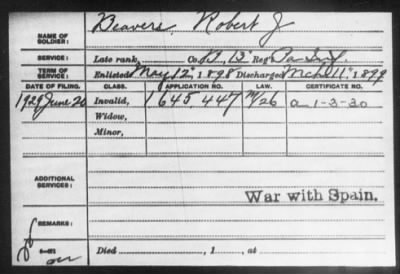 NAME OF SOLDIER: Beavers, Robert J
SERVICE: Late rank, Co. B, 13" Reg't Pa Inf.
TERM OF SERVICE: Enlisted May 12", 1898 Discharged Mch 11", 1899
DATE OF FILING. CLASS. APPLICATION NO. LAW. CERTIFICATE NO.
1929 June 26 Invalid, 1645447 a 1-3-30
Widow,
Minor,
ADDITIONAL SERVICES:
War with Spain.
REMARKS:
Died , 1 , at